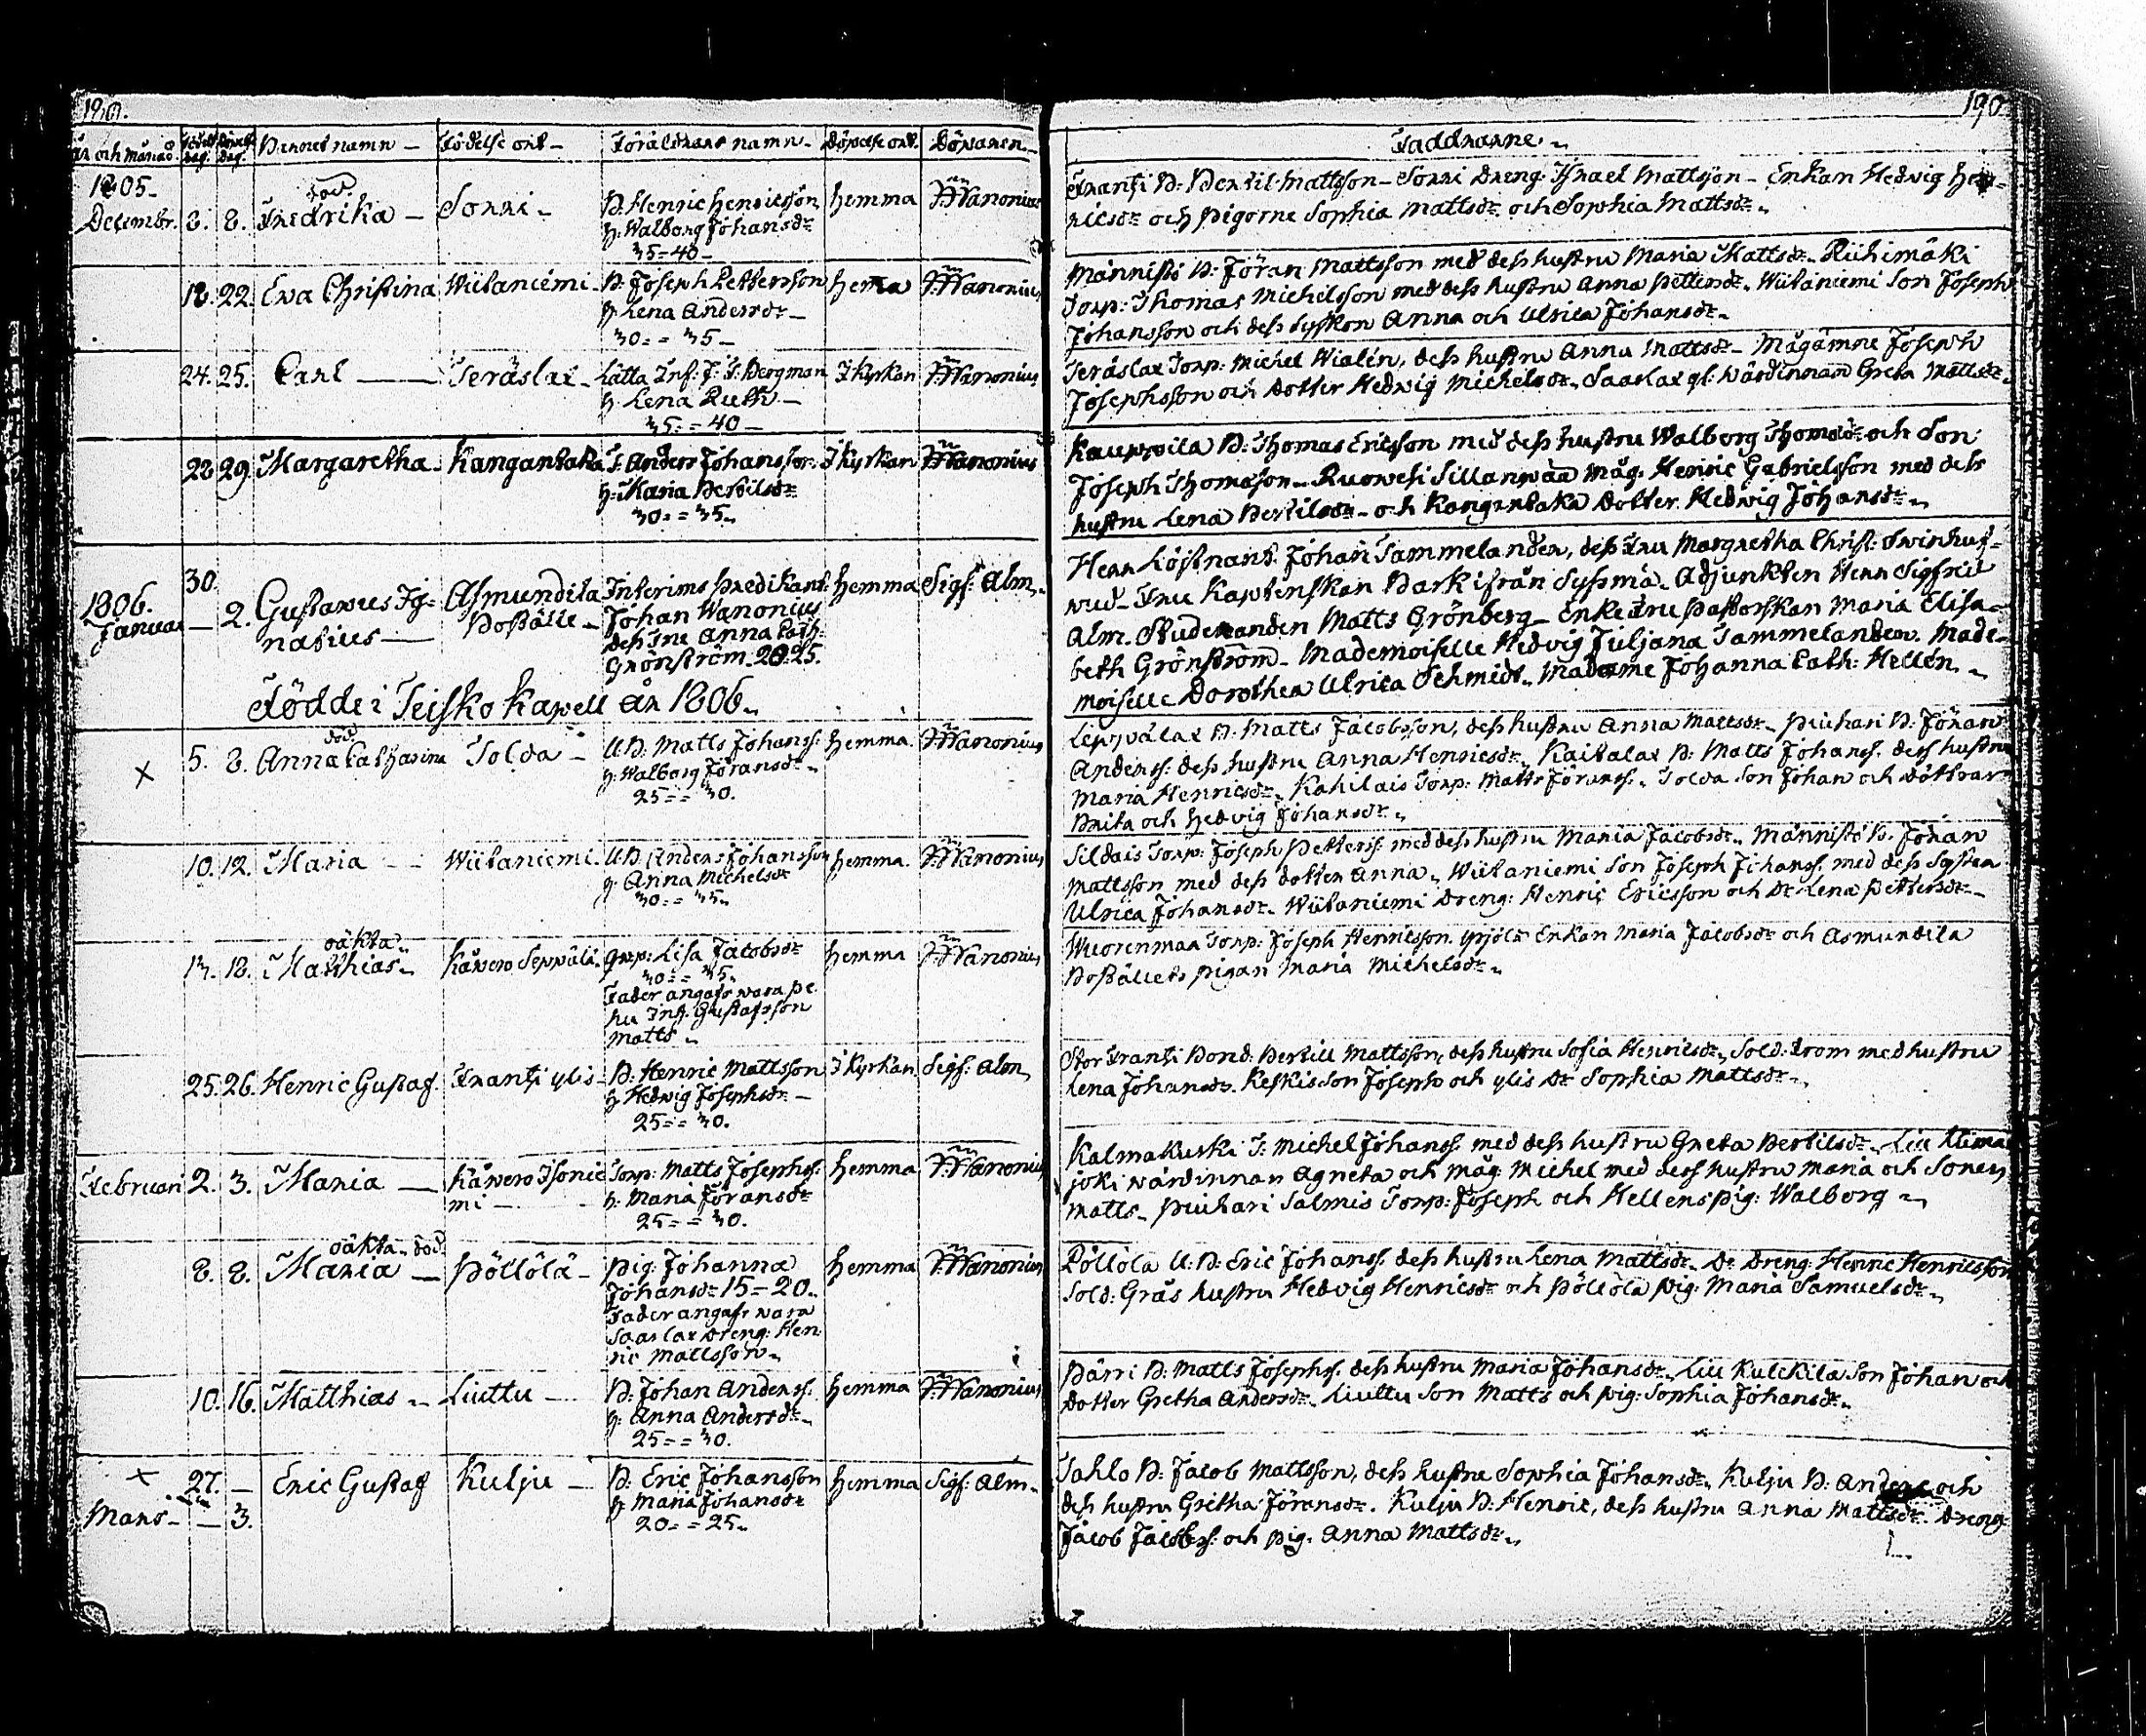 190.
190
År och månad. Födelse dag. Döpelse dag. Barnet namn – Födelse ort – Föräldrars namn – Döpelse ort. Döparen –
Faddrarne
1805.
Decembr. 8. 8. Fredrika – Sorri – B. Henric Henricsson hemma J. Wanonius
död.
h: Walborg Johansdr
35=40 –
Frantzi B: Bertil Mattsson – Sorri Dreng: Israel Mattsson – Enkan Hedvig Hen-
ricsdr och pigorne Sophia Mattsdr och Sophia Mattsdr
18. 22. Eva Christina Wiitaniemi – B. Joseph Pettersson hemma J. Wanonius
h Lena Andersdr –
30 = 35 –
Männistö B: Jöran Mattsson med dess hustru Maria Mattsdr – Riihimäki
Torp: Thomas Michelsson med dess hustru Anna Pettersdr. Wiitaniemi Son Joseph
Johansson och dess syskon Anna och Ulrica Johansdr
24. 25. Carl — Teräslax – Lätta Inf: J: S: Bergman I Kyrkan J. Wanonius
h Lena Ruth –
35 = 40 –
Teräslax Torp: Michel Wialén, dess hustru Anna Mattsdr – Mågämne Joseph
Josephsson och Dotter Hedwig Michelsdr. Saarlax gl: Wärdinnan Greta Mattsdr.
28 29. Margaretha – Kangantaka T. Anders Johansson I Kyrkan J. Wanonius
h: Maria Bertilsdr
30 = 35
Kauppila B: Thomas Ericsson med dess hustru Walborg Thomasdr och Son
Joseph Thomasson – Ruowesi Sillanpää Måg: Henric Gabrielsson med dess
hustru Lena Bertilsdr – och Kangantaka Dotter Hedwig Johansdr
30.
1806.
Januar — 2. Gustavus Ig- Asmundila Interims Predikant hemma Sigf: Alm.
natius — Boställe – Johan Wanonius
dess Fru Anna Cath:
Grönström 20=25.
Herr Löjtnant Johan Tammelander, dess Fru Margretha Christ: Swinhuf-
vud – Fru Kaptenskan Bark ifrån Syssmä – Adjunkten Herr Sigfrid
Alm. Studeranden Matts Grönberg – Enke Fru Pastorskan Maria Elisa-
beth Grönström – Mademoiselle Hedvig Juljana Tammelander. Made-
moiselle Dorothea Ulrica Schmidt. Madame Johanna Cath: Hellén
Födde i Teisko Kapell År 1806.
död.
× 5. 8. Anna Catharina Tolda – U.B: Matts Johanss: hemma. J. Wanonius
h: Walborg Jöransdr
25 = 30.
Leppälax B: Matts Jacobsson, dess hustru Anna Mattsdr – Piuhari B: Jöran
Anderss: dess hustru Anna Henricsdr – Kaitalax B: Matts Johanss: dess hustru
Maria Henricsdr. Kahilais Torp: Matts Jöranss: Tolda Son Johan och döttrar
Brita och Hedvig Johansdr
10. 12. Maria – Wiitaniemi – U.B. Anders Johansson hemma. J. Wanonius
h: Anna Michelsdr
30 = 35
Sildais Torp: Joseph Petterss: med dess hustru Maria Jacobsdr. Männistö B: Jöran
Mattsson med dess dotter Anna. Wiitaniemi Son Joseph Johanss: med dess Syster
Ulrica Johansdr. Wiitaniemi Dreng: Henric Ericsson och Dr Lena Pettersdr –
oäkta
13. 18. Matthias Käwero Seppälä – Lisa Jacobsdr hemma J. Wanonius
30 = 35
Fader angafs wara
Inf. Gustafsson
Matts
Wuorenmaa Torp: Joseph Henricsson Yrjölä Enkan Maria Jacobsdr och Asmundila
Boställets pigan Maria Michelsdr
25. 26. Henric Gustaf. Frantzi ylis – B: Henric Mattsson I Kyrkan Sigf: Alm
h Hedwig Josephsdr –
25 = 30.
Stor Frantzi Bond: Bertill Mattsson, dess hustru Sofia Henricsdr, Sold: From med hustru
Lena Johansdr. Keskis Son Joseph och ylis Dr Sophia Mattsdr
Februari 2. 3. Maria — Käwero Isonie- Torp: Matts Josephss: hemma J. Wanonius
mi – h. Maria Jöransdr
25 = 30.
Kalmakurki T: Michel Johanss: med dess hustru Greta Bertilsdr – Liu Klima
joki wärdinnan Agneta och måg Michel med dess hustru Maria och Sonen
Matts – Piuhari Salmis Torp: Joseph och Hellens pig: Walborg
oäkta. död.
8. 8. Maria — Pöllölä – Pig: Johanna hemma J. Wanonius
Johansdr 15 = 20.
Fader angafs wara
Saarlax Dreng: Hen
ric Mattsson
Pöllölä U.B: Eric Johanss: dess hustru Lena Mattsdr. Dr Dreng: Henric Henricsson
Sold: Gräs hustru Hedvig Henricsdr och Pöllölä Pig: Maria Samuelsdr
10. 16. Matthias – Liuttu – B: Johan Anderss: hemma J. Wanonius
h: Anna Andersdr
25 = 30.
Pärri B: Matts Josephss: dess hustru Maria Johansdr. Liu Kulckila Son Johan och
dotter Gretha Andersdr. Liuttu Son Matts och pig: Sophia Johansdr
× 27. — Eric Gustaf Kulju – B: Eric Johansson hemma Sigf: Alm
Mars – — 3. h Maria Johansdr
20 = 25
Sahlo B: Jacob Mattsson, dess hustru Sophia Johansdr, Kulju B: Anders och
dess hustru Gretha Jöransdr. Kulju B: Henric, dess hustru Anna Mattsdr. Dreng:
Jacob Jacobss: och pig: Anna Mattsdr